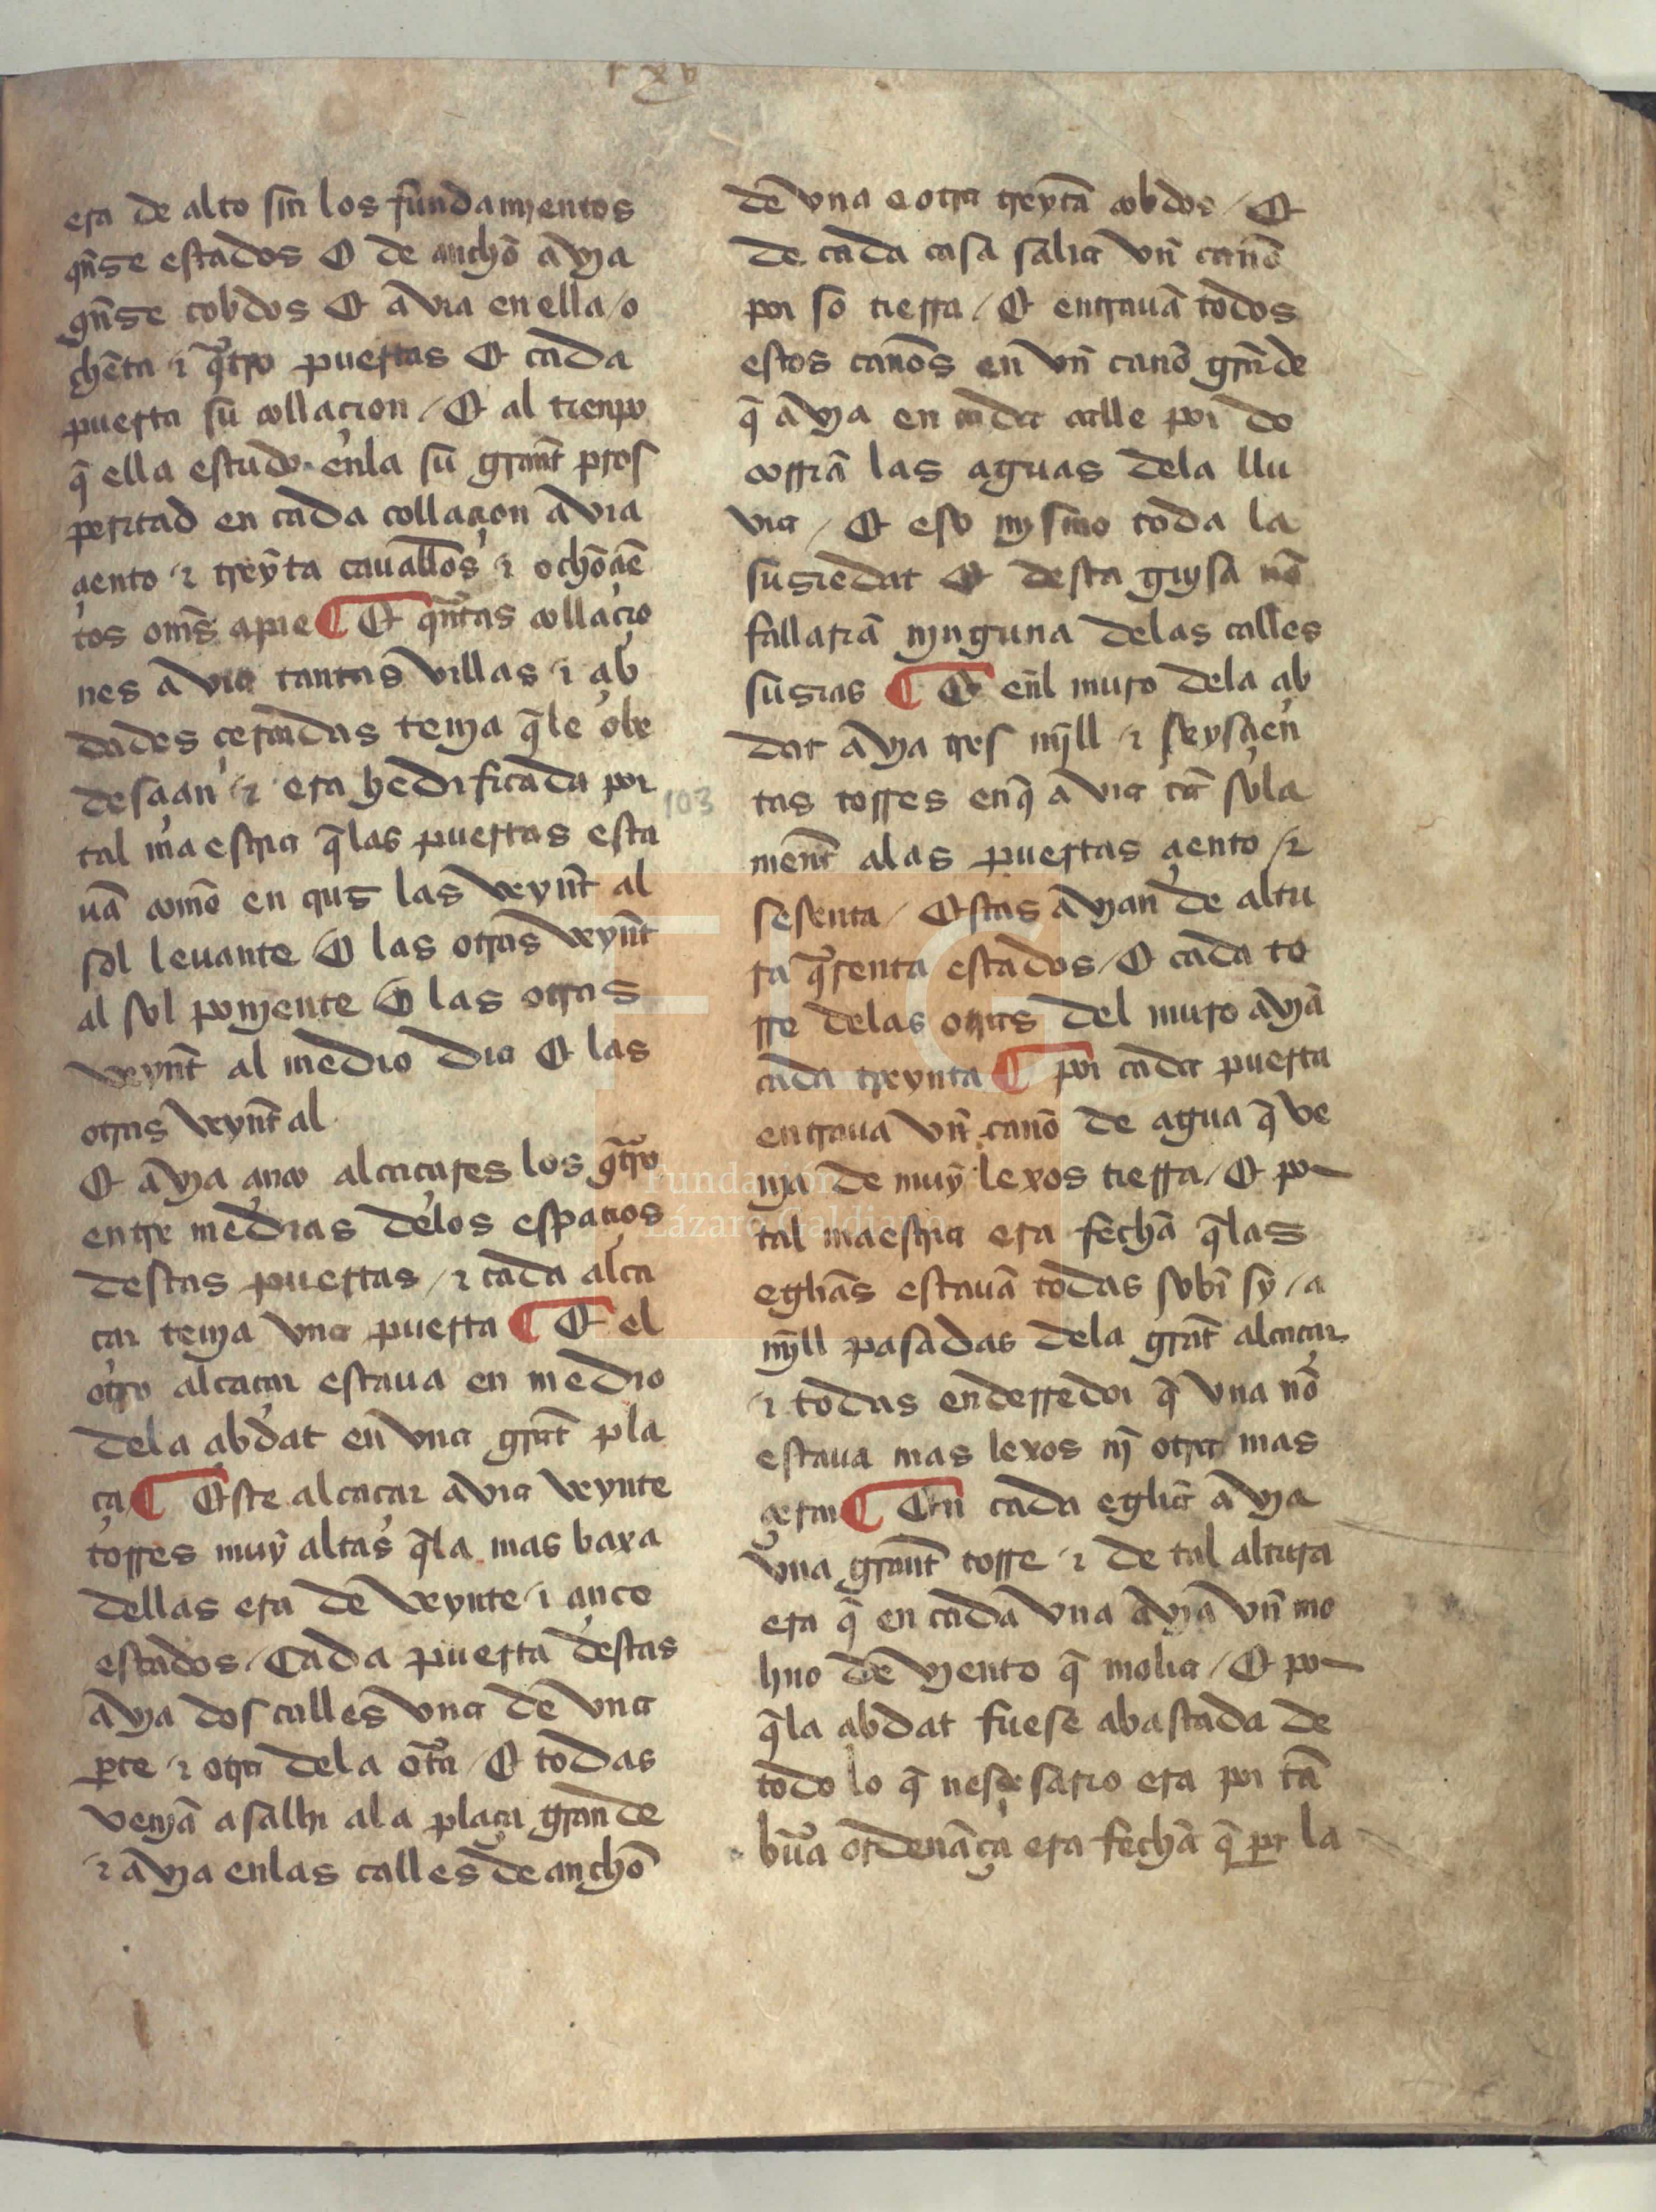 rxv
era de alto sin los fundamientos
qn̄se estados E de anchō avia
qn̄se cobdos Et avia en ella / o
chēta τ q̄tro puertas Et cada
puerta su collaçion / Et al tienpo
q̄ ella estudo enla su grant̄ pros
peritad en cada collaçion avia
çiento τ treȳta cauall̄os τ ochōçiē
tos om̄s apie ¶ Et qn̄tas collaçio
nes avia tantas villas τ çib
dades çercadas tenia q̄le obe
desçian τ era hedificada por
tal maestria q̄las puertas esta
uā comō en quȝ las veynt̄ al
sol leuante E las otras veynt̄
al sol poniente E las otras
veynt̄ al medio dia E las
otras veynt̄ al
Et avia çinco alcaçares los q̄tro
entre medias delos espaçios
destas puertas / τ cada alca
çar tenia vna puerta ¶ Et el
otro alcaçar estaua en medio
dela çibdat en vna grāt pla
ça ¶ Este alcaçar avia veynte
torres muȳ altas q̄la mas baxa
dellas era de veynte τ çinco
estados / Cada puerta destas
avia dos calles vna de vna
p̱te τ otra dela ot̄ra / Et todas
veniā a salhir ala plaça grande
τ avia enlas calles de anchō
103
dē vna e otra treytā cobdos / Et
de cada casa salia vn̄ canō
por so tierra / Et entrauā todos
estos canōs en vn̄ canō grāde
q̄ avia en cada calle por do
corriā las aguas dela llu
via / Et eso mismo toda la
susiedat Et desta guysa nō
fallariā ninguna delas calles
susias ¶ Et en̄l muro dela çib
dat avia tres mīll τ seysçien
tas torres enq̄ avia tā sola
ment̄ alas puertas çiento τ
sesenta / Estas avian de altu
ra q̄renta estados / E cada to
rre delas otras del muro aviā
cada treynta ¶ por cada puerta
entraua vn̄ canō de agua q̄ ve
nia de muȳ lexos tierra / Et por
tal maestria era fechā q̄las
eglias̄ estauā todas sobr̄ sy / a
mīll pasadas dela grāt alcaçar
τ todas enderredor q̄ vna nō
estaua mas lexos nī otra mas
çerca ¶ En cada egliā avia
vna grant̄ torre τ de tal altura
era q̄ en cada vna aviā vn̄ mo
lino de viento q̄ molia / Et por
q̄la çibdat fuese abastada de
todo lo q̄ nesçesario era por tā
būa ordenāça era fechā q̄ por la
FLG
Fundación
Lázaro Galdiano